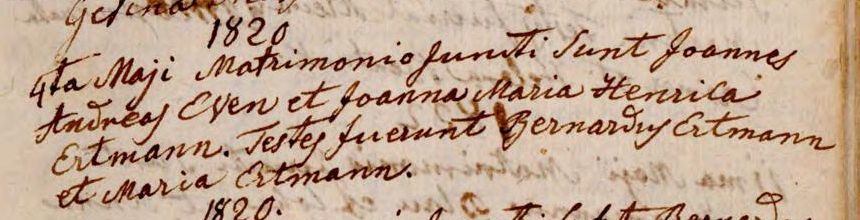 1820
4ta Maji Matrimonio juncti Sunt Joannes
Andreas Even et Joanna Maria Henrica
Ertmann. Testes fuerunt Bernardus Ertmann
et Maria Ertmann.
1820.